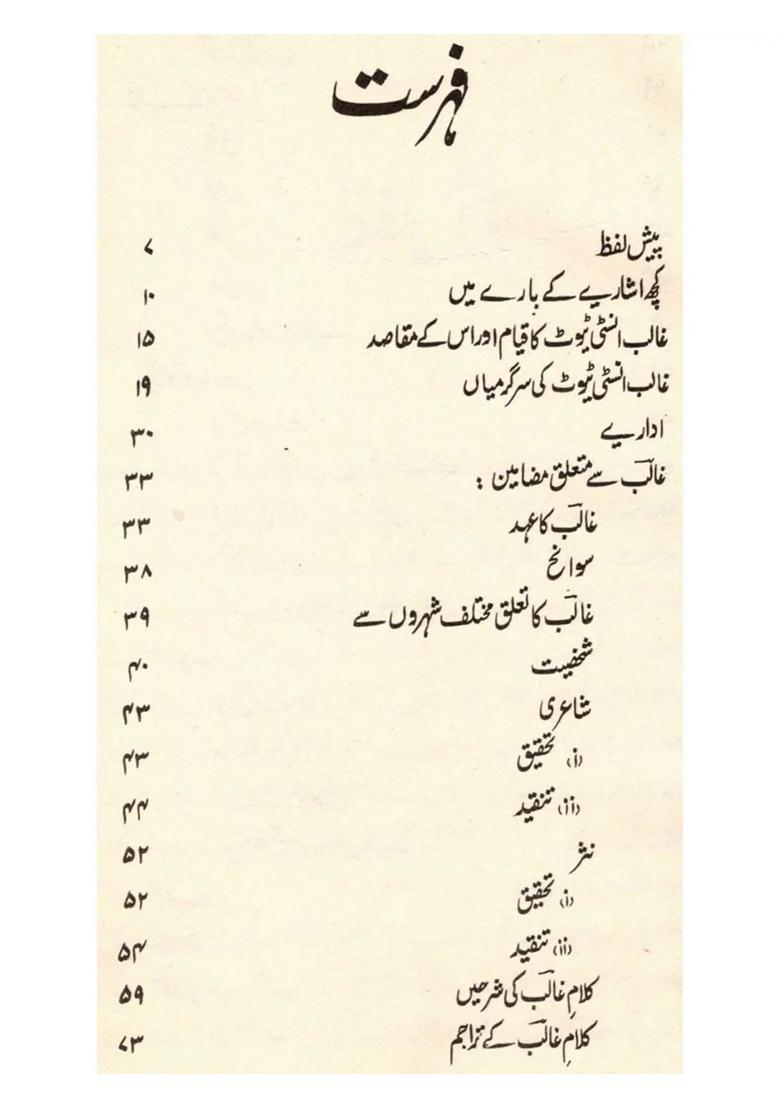 فہرست
پیش لفظ ۷
کچھ اشاریے کے بارے میں ۱۰
غالب انسٹی ٹیوٹ کا قیام اور اس کے مقاصد ۱۵
غالب انسٹی ٹیوٹ کی سرگرمیاں ۱۹
اداریے ۳۰
غالبؔ سے متعلق مضامین : ۳۳
غالبؔ کا عہد ۳۳
سوانح ۳۸
غالبؔ کا تعلق مختلف شہروں سے ۳۹
شخصیت ۴۰
شاعری ۴۳
(i) تحقیق ۴۳
(ii) تنقید ۴۴
نثر ۵۲
(i) تحقیق ۵۲
(ii) تنقید ۵۴
کلامِ غالبؔ کی شرحیں ۵۹
کلامِ غالبؔ کے تراجم ۷۳